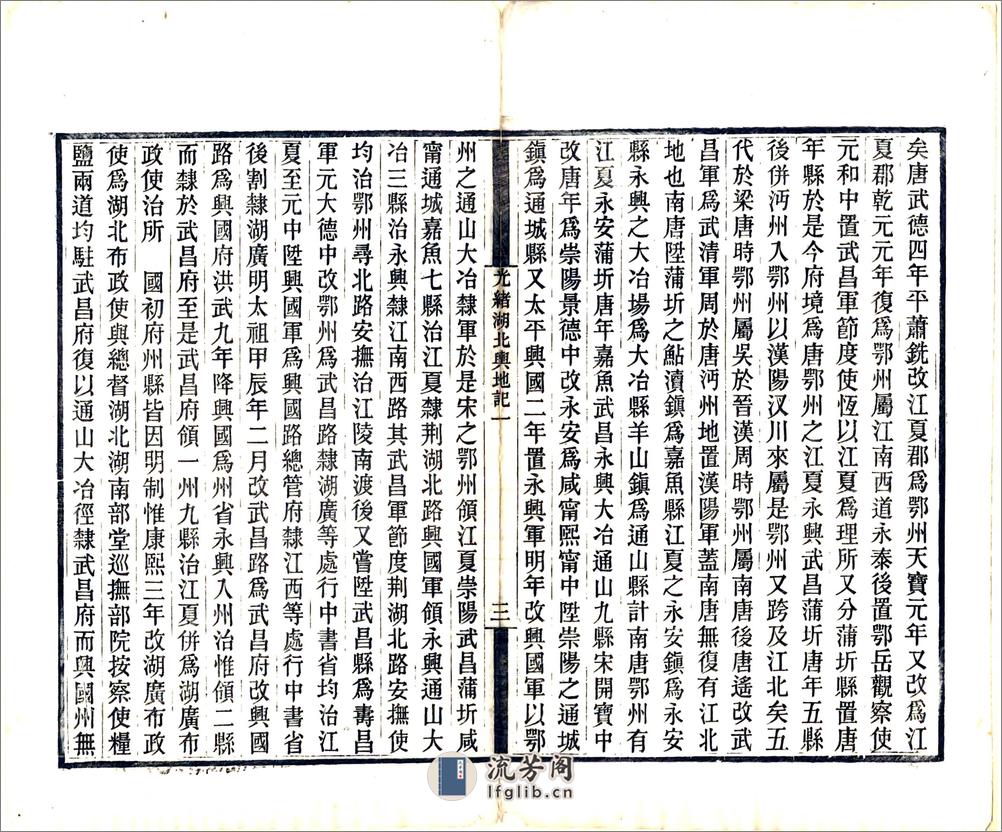 矣唐武德四年平蕭銑改江夏郡爲鄂州天寶元年又改爲江
夏郡乾元元年復爲鄂州屬江南西道永泰後置鄂岳觀察使
元和中置武昌軍節度使恆以江夏爲理所又分蒲圻縣置唐
年縣於是今府境爲唐鄂州之江夏永興武昌蒲圻唐年五縣
後併沔州入鄂州以漢陽汊川來屬是鄂州又跨及江北矣五
代於梁唐時鄂州屬吳於晉漢周時鄂州屬南唐後唐遙改武
昌軍爲武清軍周於唐沔州地置漢陽軍蓋南唐無復有江北
地也南唐陞蒲圻之鮎瀆鎮爲嘉魚縣江夏之永安鎮爲永安
縣永興之大冶場爲大冶縣羊山鎮爲通山縣計南唐鄂州有
江夏永安蒲圻唐年嘉魚武昌永興大冶通山九縣宋開寶中
改唐年爲崇陽景德中改永安爲咸甯熙甯中陞崇陽之通城
鎮爲通城縣又太平興國二年置永興軍明年改興國軍以鄂
光緒湖北輿地記一
三
州之通山大冶隸軍於是宋之鄂州領江夏崇陽武昌蒲圻咸
甯通城嘉魚七縣治江夏隸荆湖北路興國軍領永興通山大
冶三縣治永興隸江南西路其武昌軍節度荆湖北路安撫使
均治鄂州尋北路安撫治江陵南渡後又嘗陞武昌縣爲壽昌
軍元大德中改鄂州爲武昌路隸湖廣等處行中書省均治江
夏至元中陞興國軍爲興國路總管府隸江西等處行中書省
後割隸湖廣明太祖甲辰年二月改武昌路爲武昌府改興國
路爲興國府洪武九年降興國爲州省永興入州治惟領二縣
而隸於武昌府至是武昌府領一州九縣治江夏併爲湖廣布
政使治所　國初府州縣皆因明制惟康熙三年改湖廣布政
使爲湖北布政使與總督湖北湖南部堂巡撫部院按察使糧
鹽兩道均駐武昌府復以通山大冶徑隸武昌府而興國州無
流芳阁
lfglib.cn